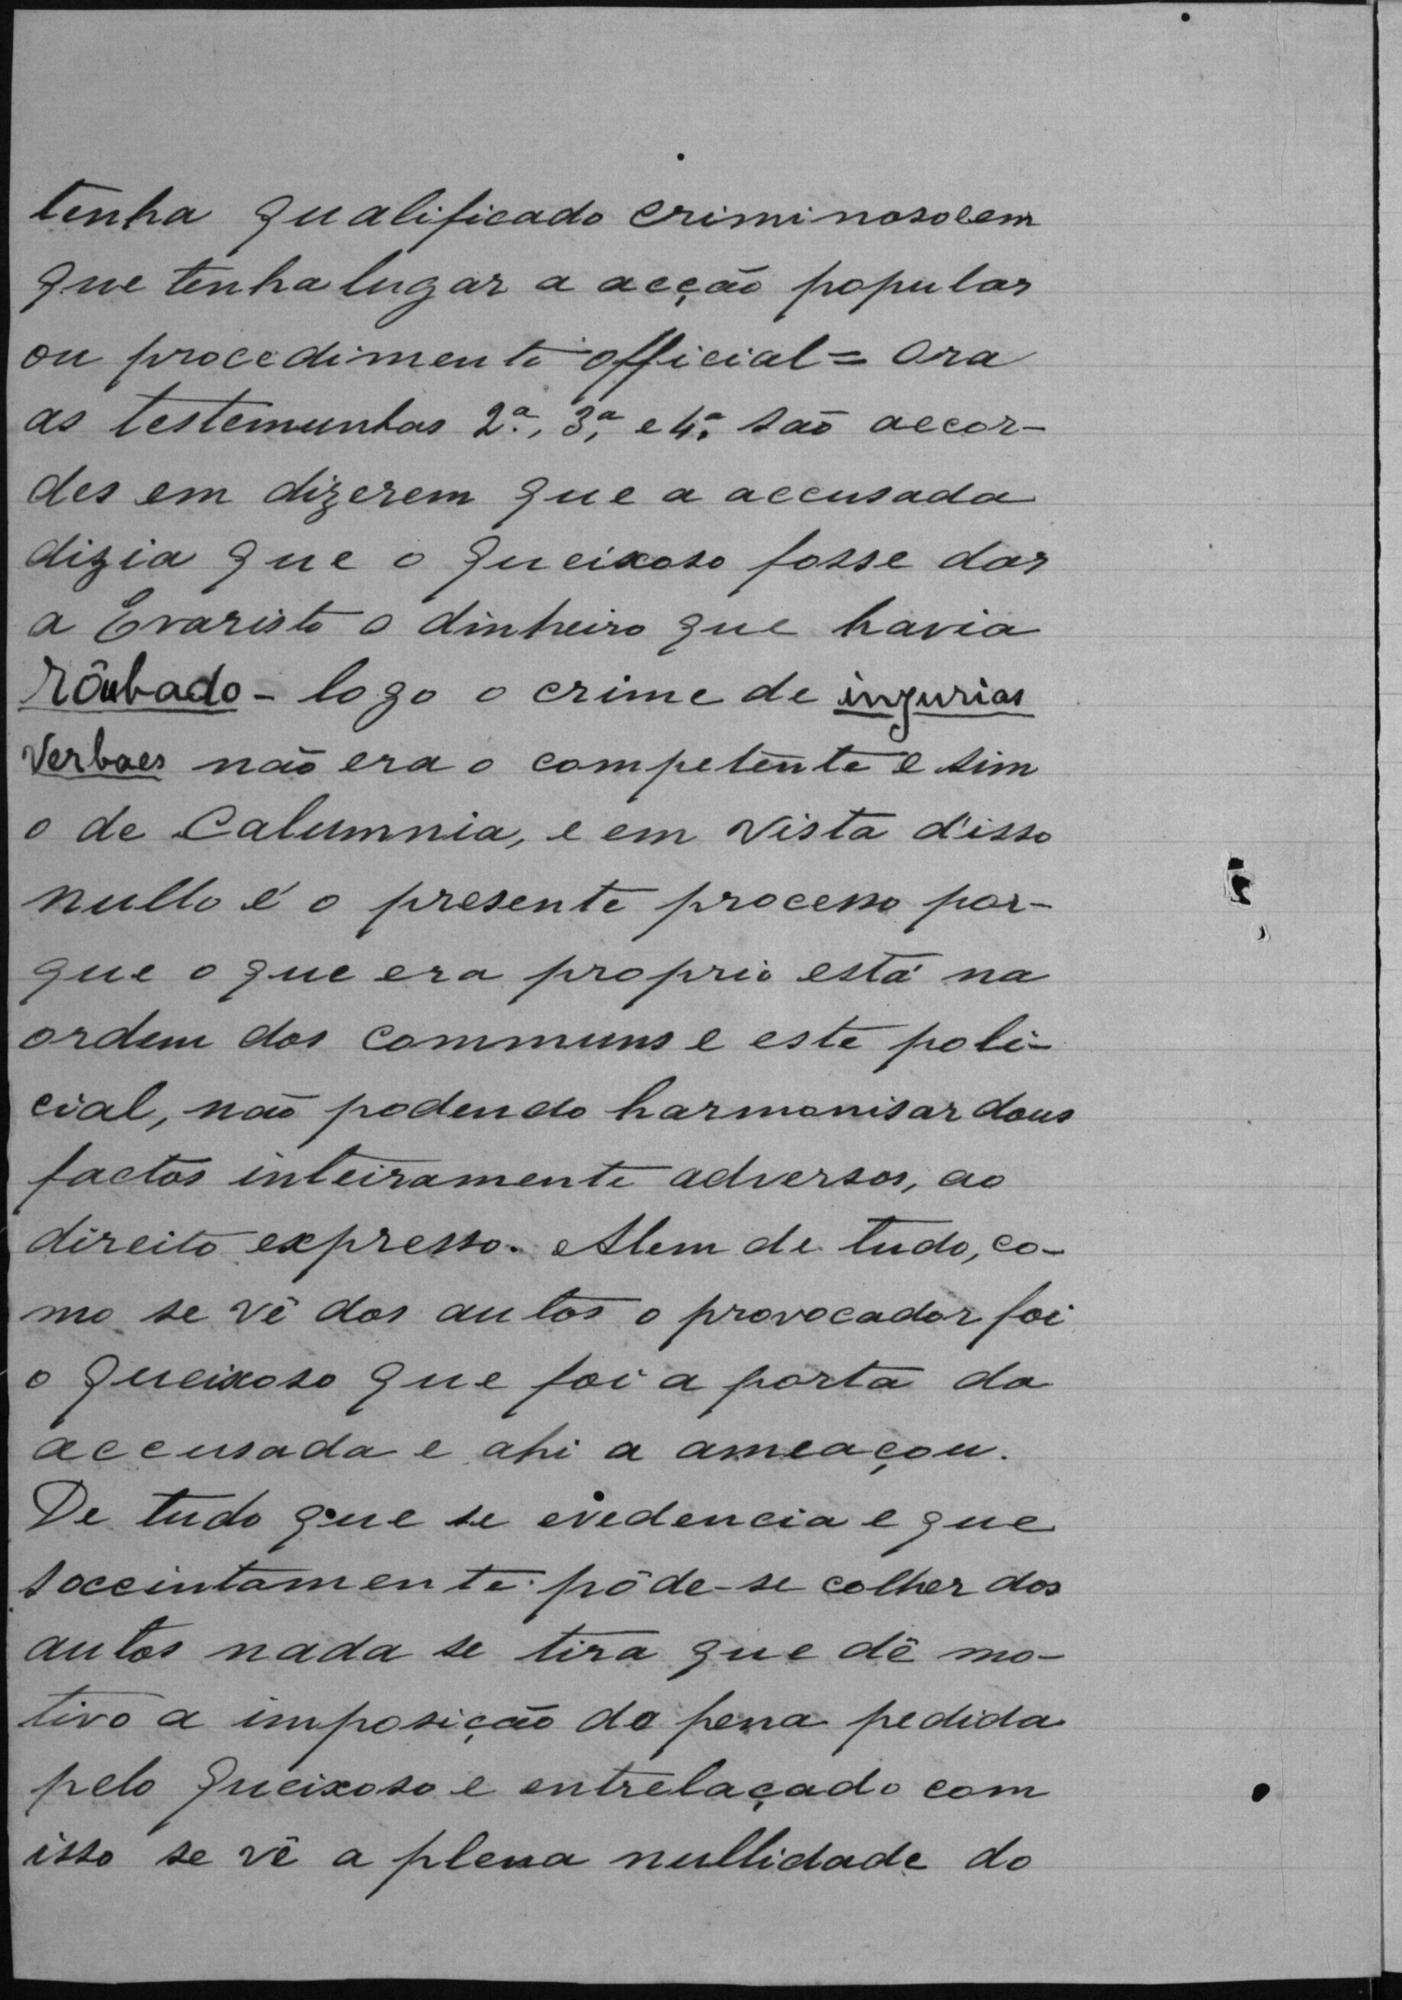 tenha qualificado criminoso e em
que tenha lugar a acção popular
ou procedimento official = Ora
as testemunhas 2.ª, 3.ª e 4.ª são accor-
des em dizerem que a accusada
dizia que o queixoso fosse dar
a Evaristo o dinheiro que havia
rôubado - logo o crime de injurias
verbaes não era o competente e sim
o de Calumnia, e em vista d'isso
nullo é o presente processo por-
que o que era proprio está na
ordem dos communs e este poli-
cial, não podendo harmonisar dous
factos inteiramente adversos, ao
direito expresso. Alem de tudo, co-
mo se vê dos autos o provocador foi
o queixoso que foi a porta da
accusada e ahi a ameaçou.
De tudo que se evedencia e que
soccintamente pôde-se colher dos
autos nada se tira que dê mo-
tivo a imposição da pena pedida
pelo queixoso e entrelaçado com
isso se vê a plena nullidade do